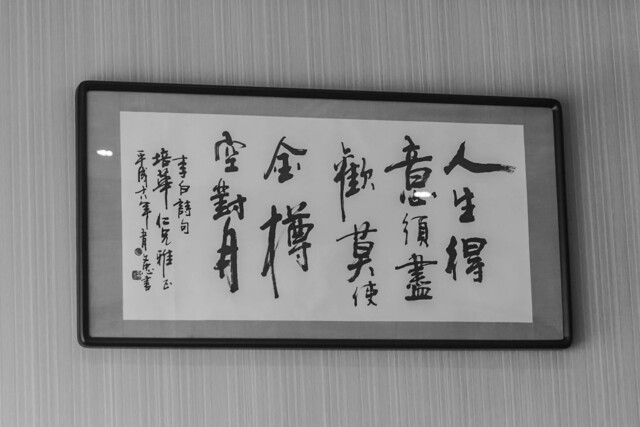 人生得
意須盡
歡莫使
金樽
空對月
李白詩句
培華仁兄雅正
平成十八年
書